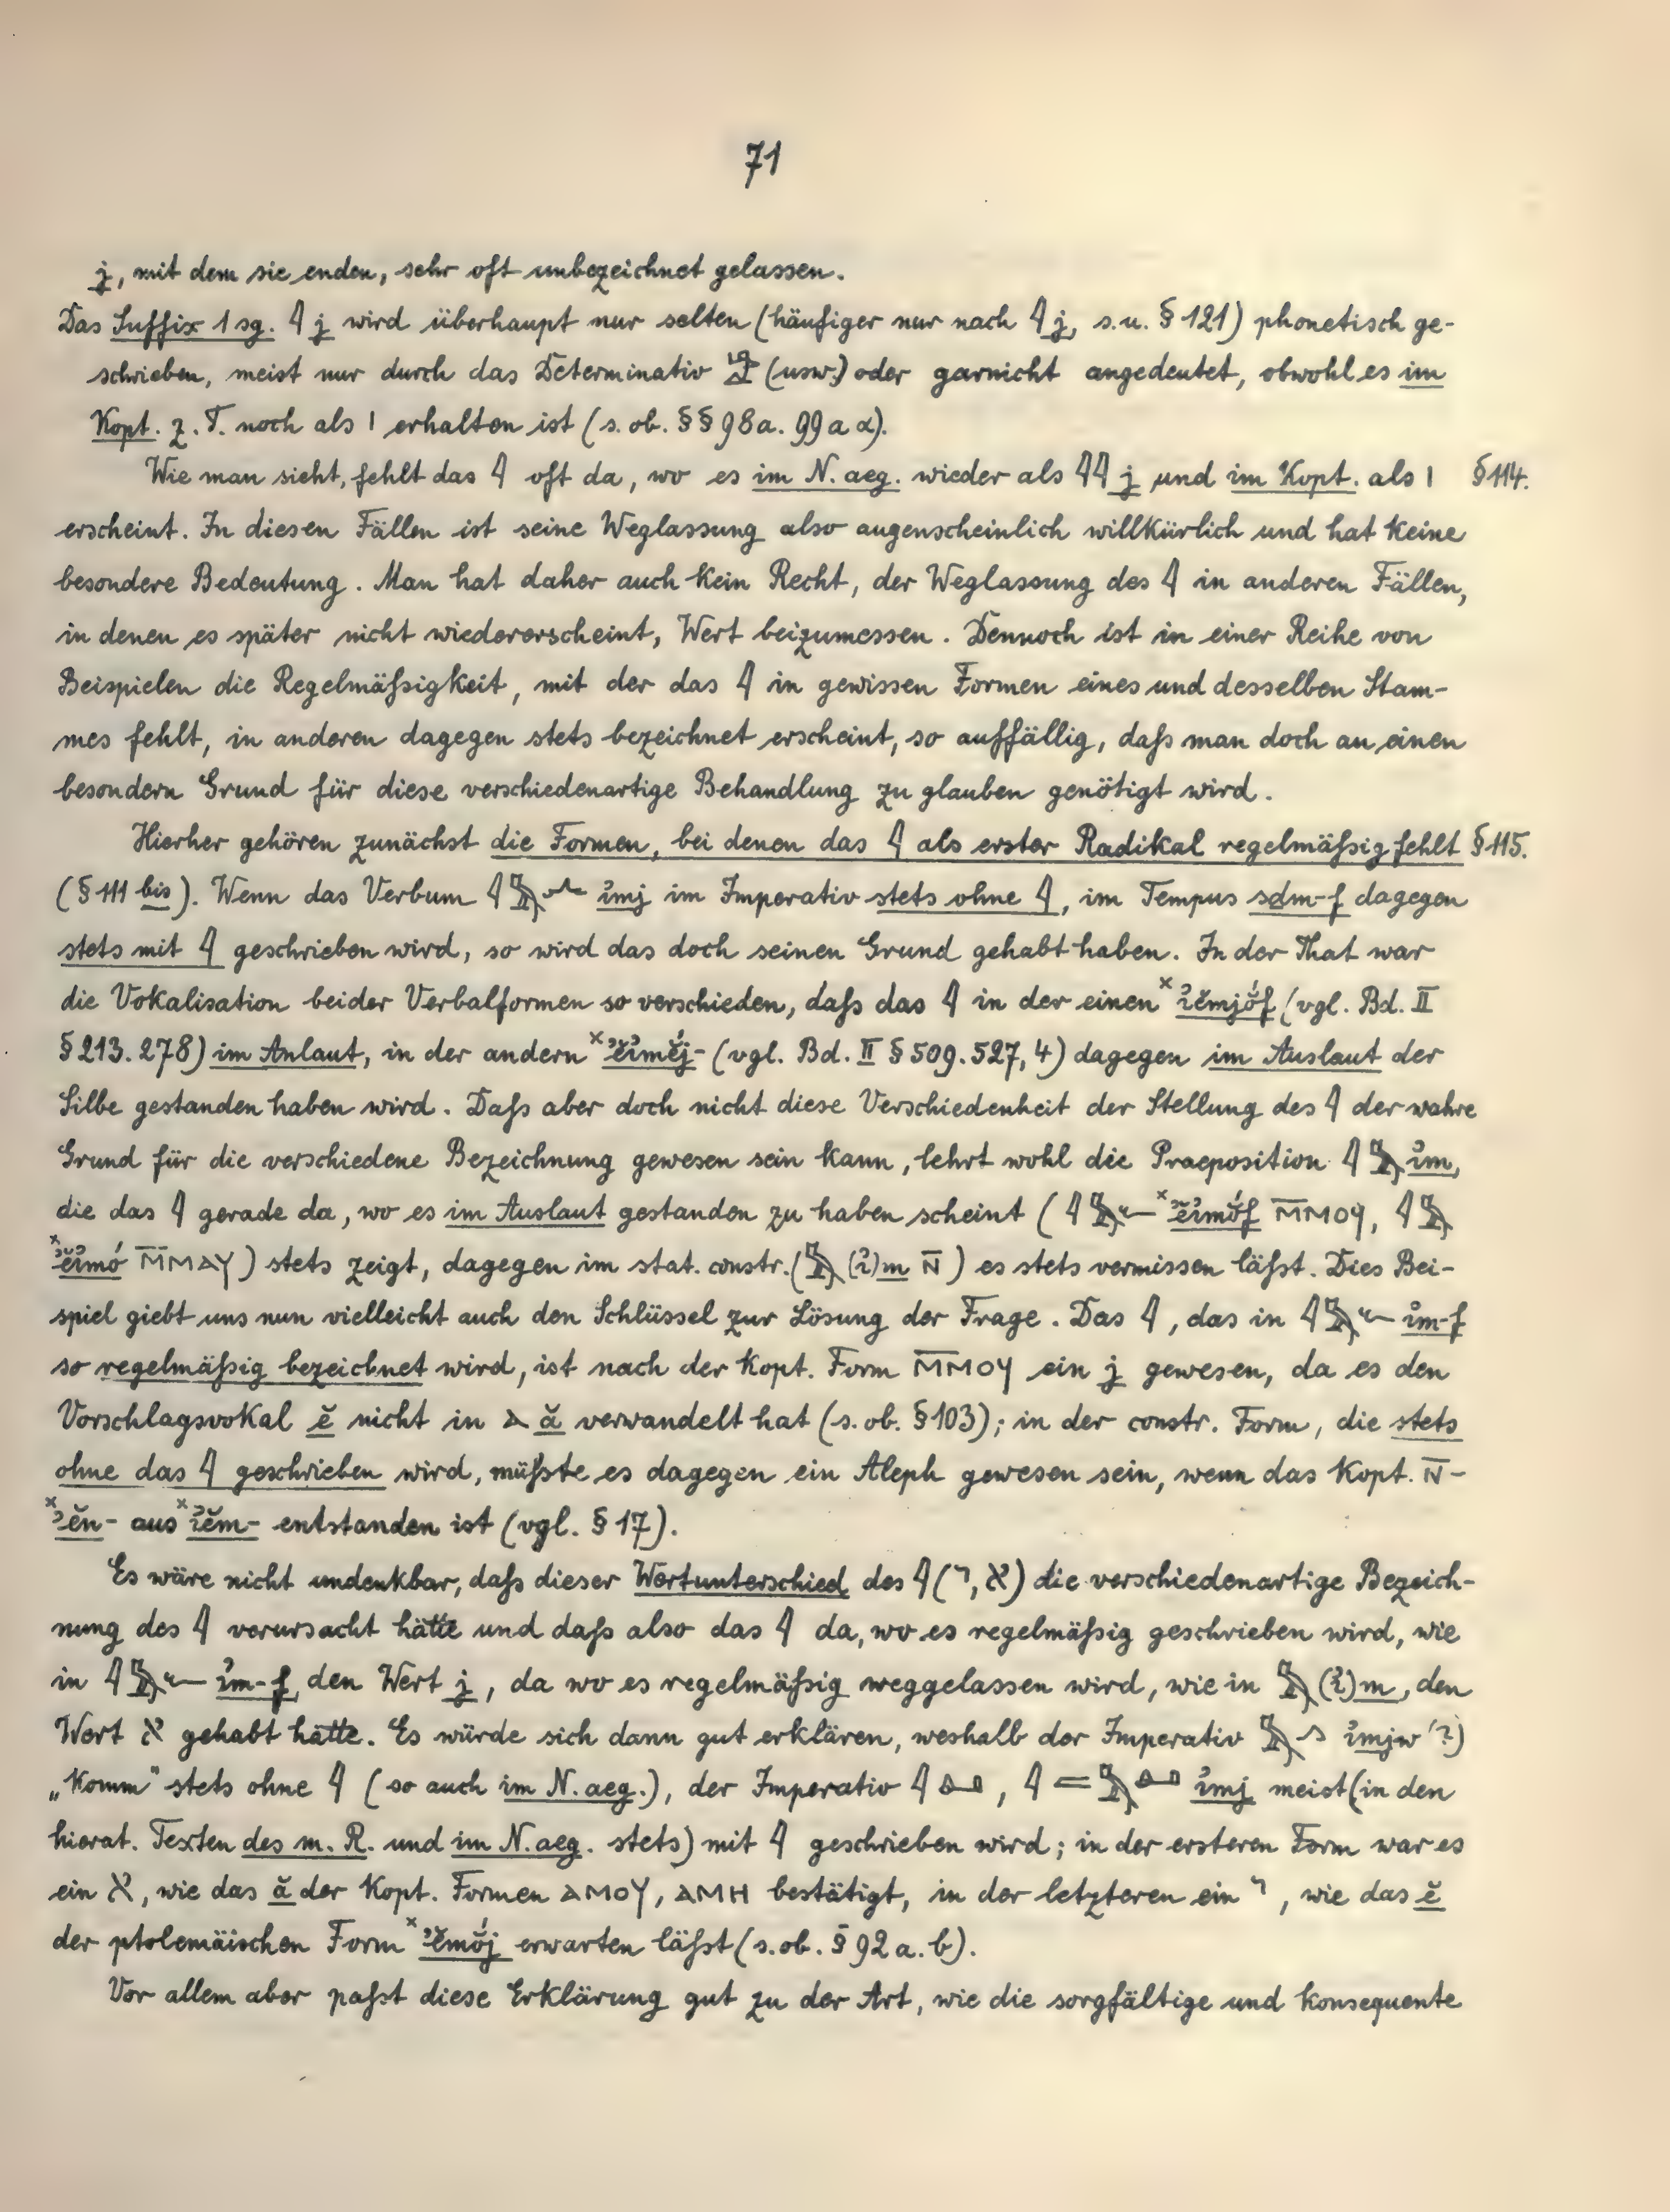 71
j, mit dem sie enden, sehr oft unbezeichnet gelassen.
Das Suffix 1 sg. 𓇋 j wird überhaupt nur selten (häufiger nur nach 𓇋 j, s. u. § 121) phonetisch ge-
schrieben, meist nur durch das Determinativ 𓀀 (usw.) oder garnicht angedeutet, obwohl es im
Kopt. z. T. noch als ⲓ erhalten ist (s. ob. §§ 98a. 99a α).
Wie man sieht, fehlt das 𓇋 oft da, wo es im N. aeg. wieder als 𓇋𓇋 j und im Kopt. als ⲓ § 114.
erscheint. In diesen Fällen ist seine Weglassung also augenscheinlich willkürlich und hat keine
besondere Bedeutung. Man hat daher auch kein Recht, der Weglassung des 𓇋 in anderen Fällen,
in denen es später nicht wiedererscheint, Wert beizumessen. Dennoch ist in einer Reihe von
Beispielen die Regelmäßigkeit, mit der das 𓇋 in gewissen Formen eines und desselben Stam-
mes fehlt, in anderen dagegen stets bezeichnet erscheint, so auffällig, daß man doch an einen
besondern Grund für diese verschiedenartige Behandlung zu glauben genötigt wird.
Hierher gehören zunächst die Formen, bei denen das 𓇋 als erster Radikal regelmäßig fehlt § 115.
(§ 111 bis). Wenn das Verbum 𓇋𓅓𓂻 ı͗mj im Imperativ stets ohne 𓇋, im Tempus sdm-f dagegen
stets mit 𓇋 geschrieben wird, so wird das doch seinen Grund gehabt haben. In der That war
die Vokalisation beider Verbalformen so verschieden, daß das 𓇋 in der einen ˣı͗ĕmjŏ́f (vgl. Bd. II
§ 213. 278) im Anlaut, in der andern ˣʾĕı͗mĕj- (vgl. Bd. II § 509. 527, 4) dagegen im Auslaut der
Silbe gestanden haben wird. Daß aber doch nicht diese Verschiedenheit der Stellung des 𓇋 der wahre
Grund für die verschiedene Bezeichnung gewesen sein kann, lehrt wohl die Praeposition 𓇋𓅓 ı͗m,
die das 𓇋 gerade da, wo es im Auslaut gestanden zu haben scheint (𓇋𓅓𓆑 ˣʾĕı͗mŏ́f ⲙ̅ⲙⲟϥ, 𓇋𓅓
ˣʾĕı͗mó ⲙ̅ⲙⲁⲩ) stets zeigt, dagegen im stat. constr. (𓅓 (ı͗)m ⲛ̅) es stets vermissen läßt. Dies Bei-
spiel giebt uns nun vielleicht auch den Schlüssel zur Lösung der Frage. Das 𓇋, das in 𓇋𓅓𓆑 ı͗m-f
so regelmäßig bezeichnet wird, ist nach der kopt. Form ⲙ̅ⲙⲟϥ ein j gewesen, da es den
Vorschlagsvokal ĕ nicht in ⲁ ă verwandelt hat (s. ob. § 103); in der constr. Form, die stets
ohne das 𓇋 geschrieben wird, müßte es dagegen ein Aleph gewesen sein, wenn das kopt. ⲛ̅-
ˣʾĕn- aus ˣı͗ĕm- entstanden ist (vgl. § 17).
Es wäre nicht undenkbar, daß dieser Wertunterschied des 𓇋 (י, א) die verschiedenartige Bezeich-
nung des 𓇋 verursacht hätte und daß also das 𓇋 da, wo es regelmäßig geschrieben wird, wie
in 𓇋𓅓𓆑 ı͗m-f, den Wert j, da wo es regelmäßig weggelassen wird, wie in 𓅓 (ı͗)m, den
Wert א gehabt hätte. Es würde sich dann gut erklären, weshalb der Imperativ 𓅓𓂻 ı͗mjw (?)
„Komm" stets ohne 𓇋 (so auch im N. aeg.), der Imperativ 𓇋𓏙, 𓇋𓐛𓅓𓏙 ı͗mj meist (in den
hierat. Texten des m. R. und im N. aeg. stets) mit 𓇋 geschrieben wird; in der ersteren Form war es
ein א, wie das ă der kopt. Formen ⲁⲙⲟⲩ, ⲁⲙⲏ bestätigt, in der letzteren ein י, wie das ĕ
der ptolemäischen Form ˣʾĕmŏ́j erwarten läßt (s. ob. § 92 a. b).
Vor allem aber paßt diese Erklärung gut zu der Art, wie die sorgfältige und konsequente